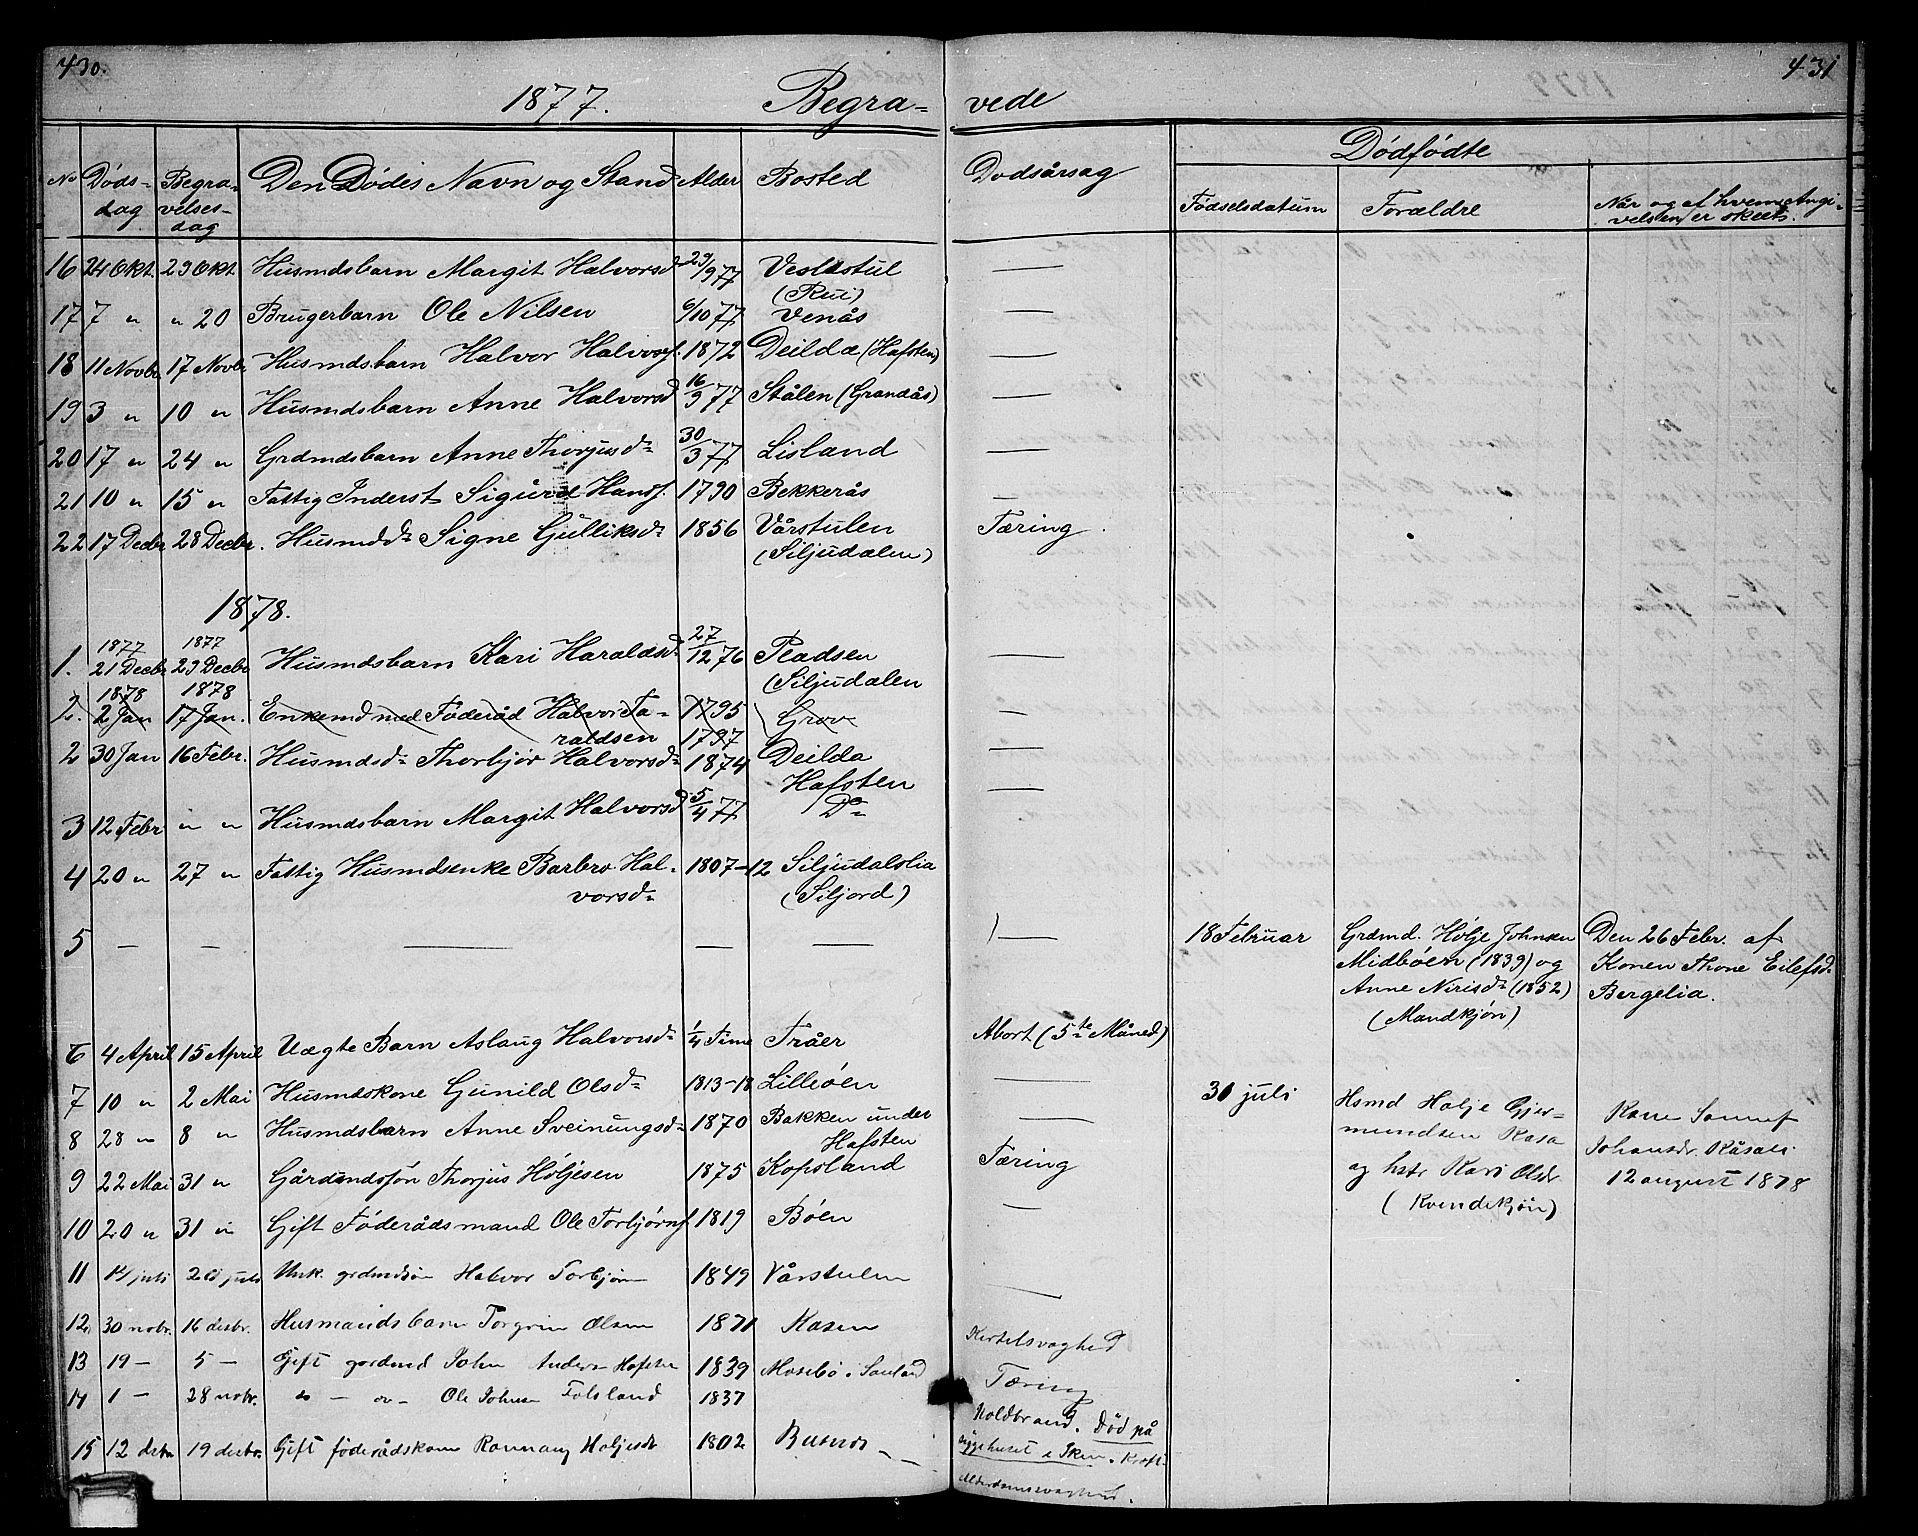 430.
431
1877. Begra= vede
No Døds- dag Begra- velses- dag Den Dødes Navn og Stand Alder Bosted Dødsårsag Dødfødte
Fødselsdatum Forældre Når og af hvem Angi- velsen er skeet.
16 24 Okt. 29 Okt Husmdsbarn Margit Halvorsd 29/9 77 Veslestul (Rui) —
17 7 " " 20 Brugerbarn Ole Nilsen 6/10 77 Venås —
18 11 Novbr 17 Novbr Husmdsbarn Halvor Halvorsf. 1872 Deilda (Hafsten) —
19 3 " 10 " Husmdsbarn Anne Halvorsd 16/9 77 Stålen (Grandås) —
20 17 " 24 " Grdmdsbarn Anne Thorjusd 30/3 77 Lisland —
21 10 " 15 " Fattig Inderst Sigurd Hansf. 1790 Bekkerås —
22 17 Decbr 28 Decbr. Husmdd Signe Gulliksd 1856 Vårstulen (Siljudalen) Tæring.
1878.
1. 1877 21 Decbr 1877 29 Decbr Husmdsbarn Kari Haraldsd 27/12 76 Pladsen (Siljudalen —
2. 1878 2 Jan 1878 17 Jan. Enkemd med Føderåd Halvor Ta- raldsen 1795 1797 Grov —
2 30 Jan 16 Febr. Husmdsd Thorbjør Halvorsd 1874 Deilda Hafsten —
3 12 Febr " " Husmdsbarn Margit Halvorsd 5/4 77 Do —
4 20 " 27 " Fattig Husmdsenke Barbro Hal- vorsd 1807-12 Siljudalslia (Siljord)
5 — — — — — — 18 Februar Grdmd. Hølje Johnsen Den 26 Febr. af
Midbøen (1839) og Konen Thone Eilefsd
Anne Nirisd (1852) Bergelia.
(Mandkjøn)
6 4 April 15 April Uægte Barn Aslaug Halvorsd 1/4 Time Tråer Abort (5te Måned)
7 10 " 2 Mai Husmdskone Gunild Olsd 1813-18 Lilleøen —
30 juli Hsmd Holje Gjer- Kone
mundsen Kasa Johansdr.
og hstr Kari Olsdr 12 august 1878
(Kvendekjøn)
8 28 " 8 " Husmdsbarn Anne Sveinungsd 1870 Bakken under Hafsten —
9 22 Mai 31 " Gårdmdssøn Thorjus Høljesen 1875 Kopsland Tæring
10 20 " 31 " Gift Føderådsmand Ole Torbjørnf 1819 Bøen —
11 14 juli 20 juli Unk. grdmdsøn Halvor Torbjørn 1849 Vårstulen —
12 30 nobr. 16 desbr. Husmandsbarn Torgrim Olsen 1871 Kasen Kirtelsvaghed
13 19 — 5 — Gift gardmd John Anders Hafsten 1839 Mosebø i Sauland Tæring
14 1 — 28 nobr. do — do — Ole Johnsen Folsland 1837 Koldbrand. Død på
sygehuset i Skien.
15 12 desbr 19 desbr. Gift føderådskone Rannaug Holjesdr 1802 Alderdomssvaghed.